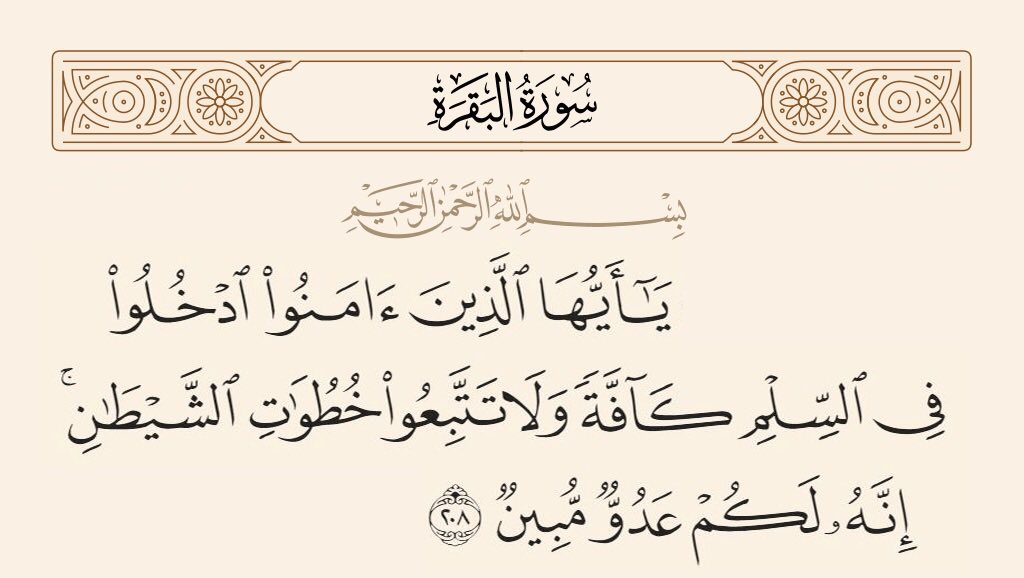 سُورَةُ البَقَرَةِ
بِسْمِ ٱللَّهِ ٱلرَّحْمَٰنِ ٱلرَّحِيمِ
يَـٰٓأَيُّهَا ٱلَّذِينَ ءَامَنُوا۟ ٱدْخُلُوا۟
فِى ٱلسِّلْمِ كَآفَّةً وَلَا تَتَّبِعُوا۟ خُطُوَٰتِ ٱلشَّيْطَـٰنِ ۚ
إِنَّهُۥ لَكُمْ عَدُوٌّ مُّبِينٌ ٢٠٨